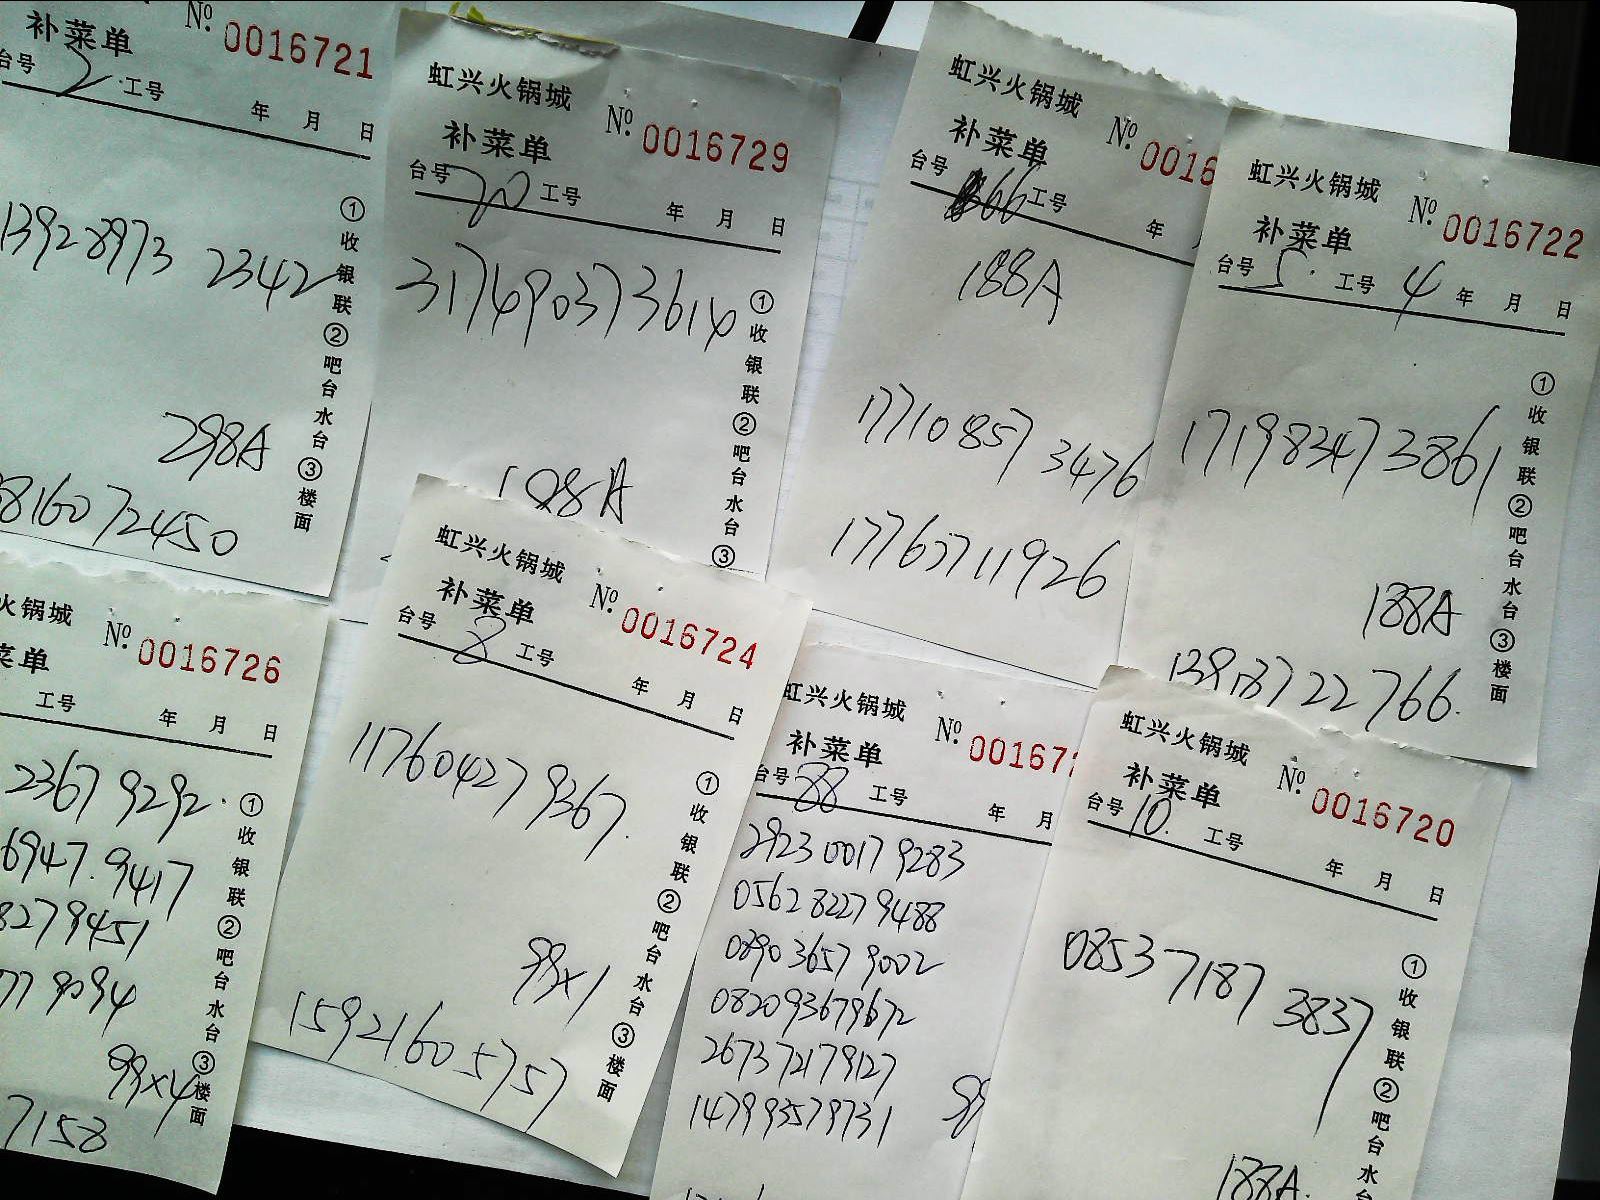 补菜单 № 0016721
台号 2 工号
年 月 日
13928973 2342
298A
8160 72450
①收银联②吧台水台③楼面
虹兴火锅城
补菜单 № 0016729
台号 20 工号
年 月 日
317490373614
188A
①收银联②吧台水台③
虹兴火锅城
补菜单 № 0016
台号 66 工号
年
188A
17710857 3476
17763711926
虹兴火锅城
补菜单 № 0016722
台号 5 工号 4 年 月 日
171983473861
188A
722766.
①收银联②吧台水台③楼面
火锅城
菜单 № 0016726
工号 年 月 日
2367 9292.
6947.9417
8279451
779094
99x4
7158
①收银联②吧台水台③楼面
虹兴火锅城
补菜单 № 0016724
台号 8 工号
年 月 日
11760427 9367.
99x1
1592160 5757
①收银联②吧台水台③楼面
虹兴火锅城
补菜单 № 001672
台号 88 工号 年 月
2923 0017 9283
0562 8227 9488
0890 3657 9002
082093679672
267372179127
147993579731
99
虹兴火锅城
补菜单 № 0016720
台号 10. 工号
年 月 日
08537187 3837
188A.
①收银联②吧台水台